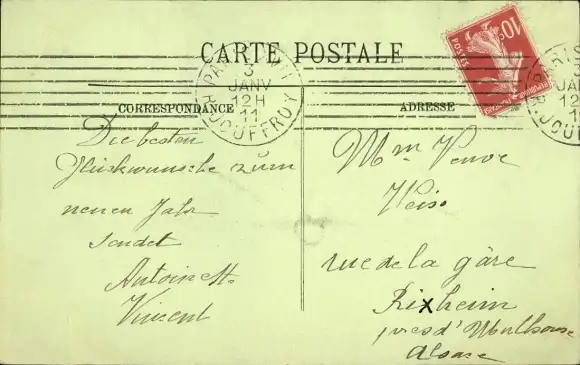 CARTE POSTALE
CORRESPONDANCE
ADRESSE
PARIS
3
JANV
12H
11
R. JOUFFROY
10c
POSTES
Die besten
Glückwunsche zum
neuen Jahr
sendet
Antoinette
Vincent
Mme Veuve
Weiss
rue de la gâre
Rixheim
près d'Mulhouse
Alsace